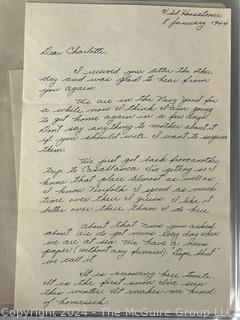 USS Housatonic
8 January 1944
Dear Charlotte,
I received your letter the other
day and was glad to hear from
you again.
We are in the Navy Yard for
a while now I think I am going
to get home again in a few days.
Don't say anything to mother about it
if you should write I want to surprise
them.
We just got back from another
trip to Casablanca. I'm getting so I
know that place almost as well as
I know Norfolk. I spend as much
time over there I guess. I like it
better over there than I do here.
About that news you asked
about. We do get news every day when
we are at sea. We have a news
paper (without any funnies). "Dope Sheet"
we call it.
It is snowing here tonite.
It is the first snow I've seen
this winter. It makes me kind
of homesick.
Copyright 2024 -